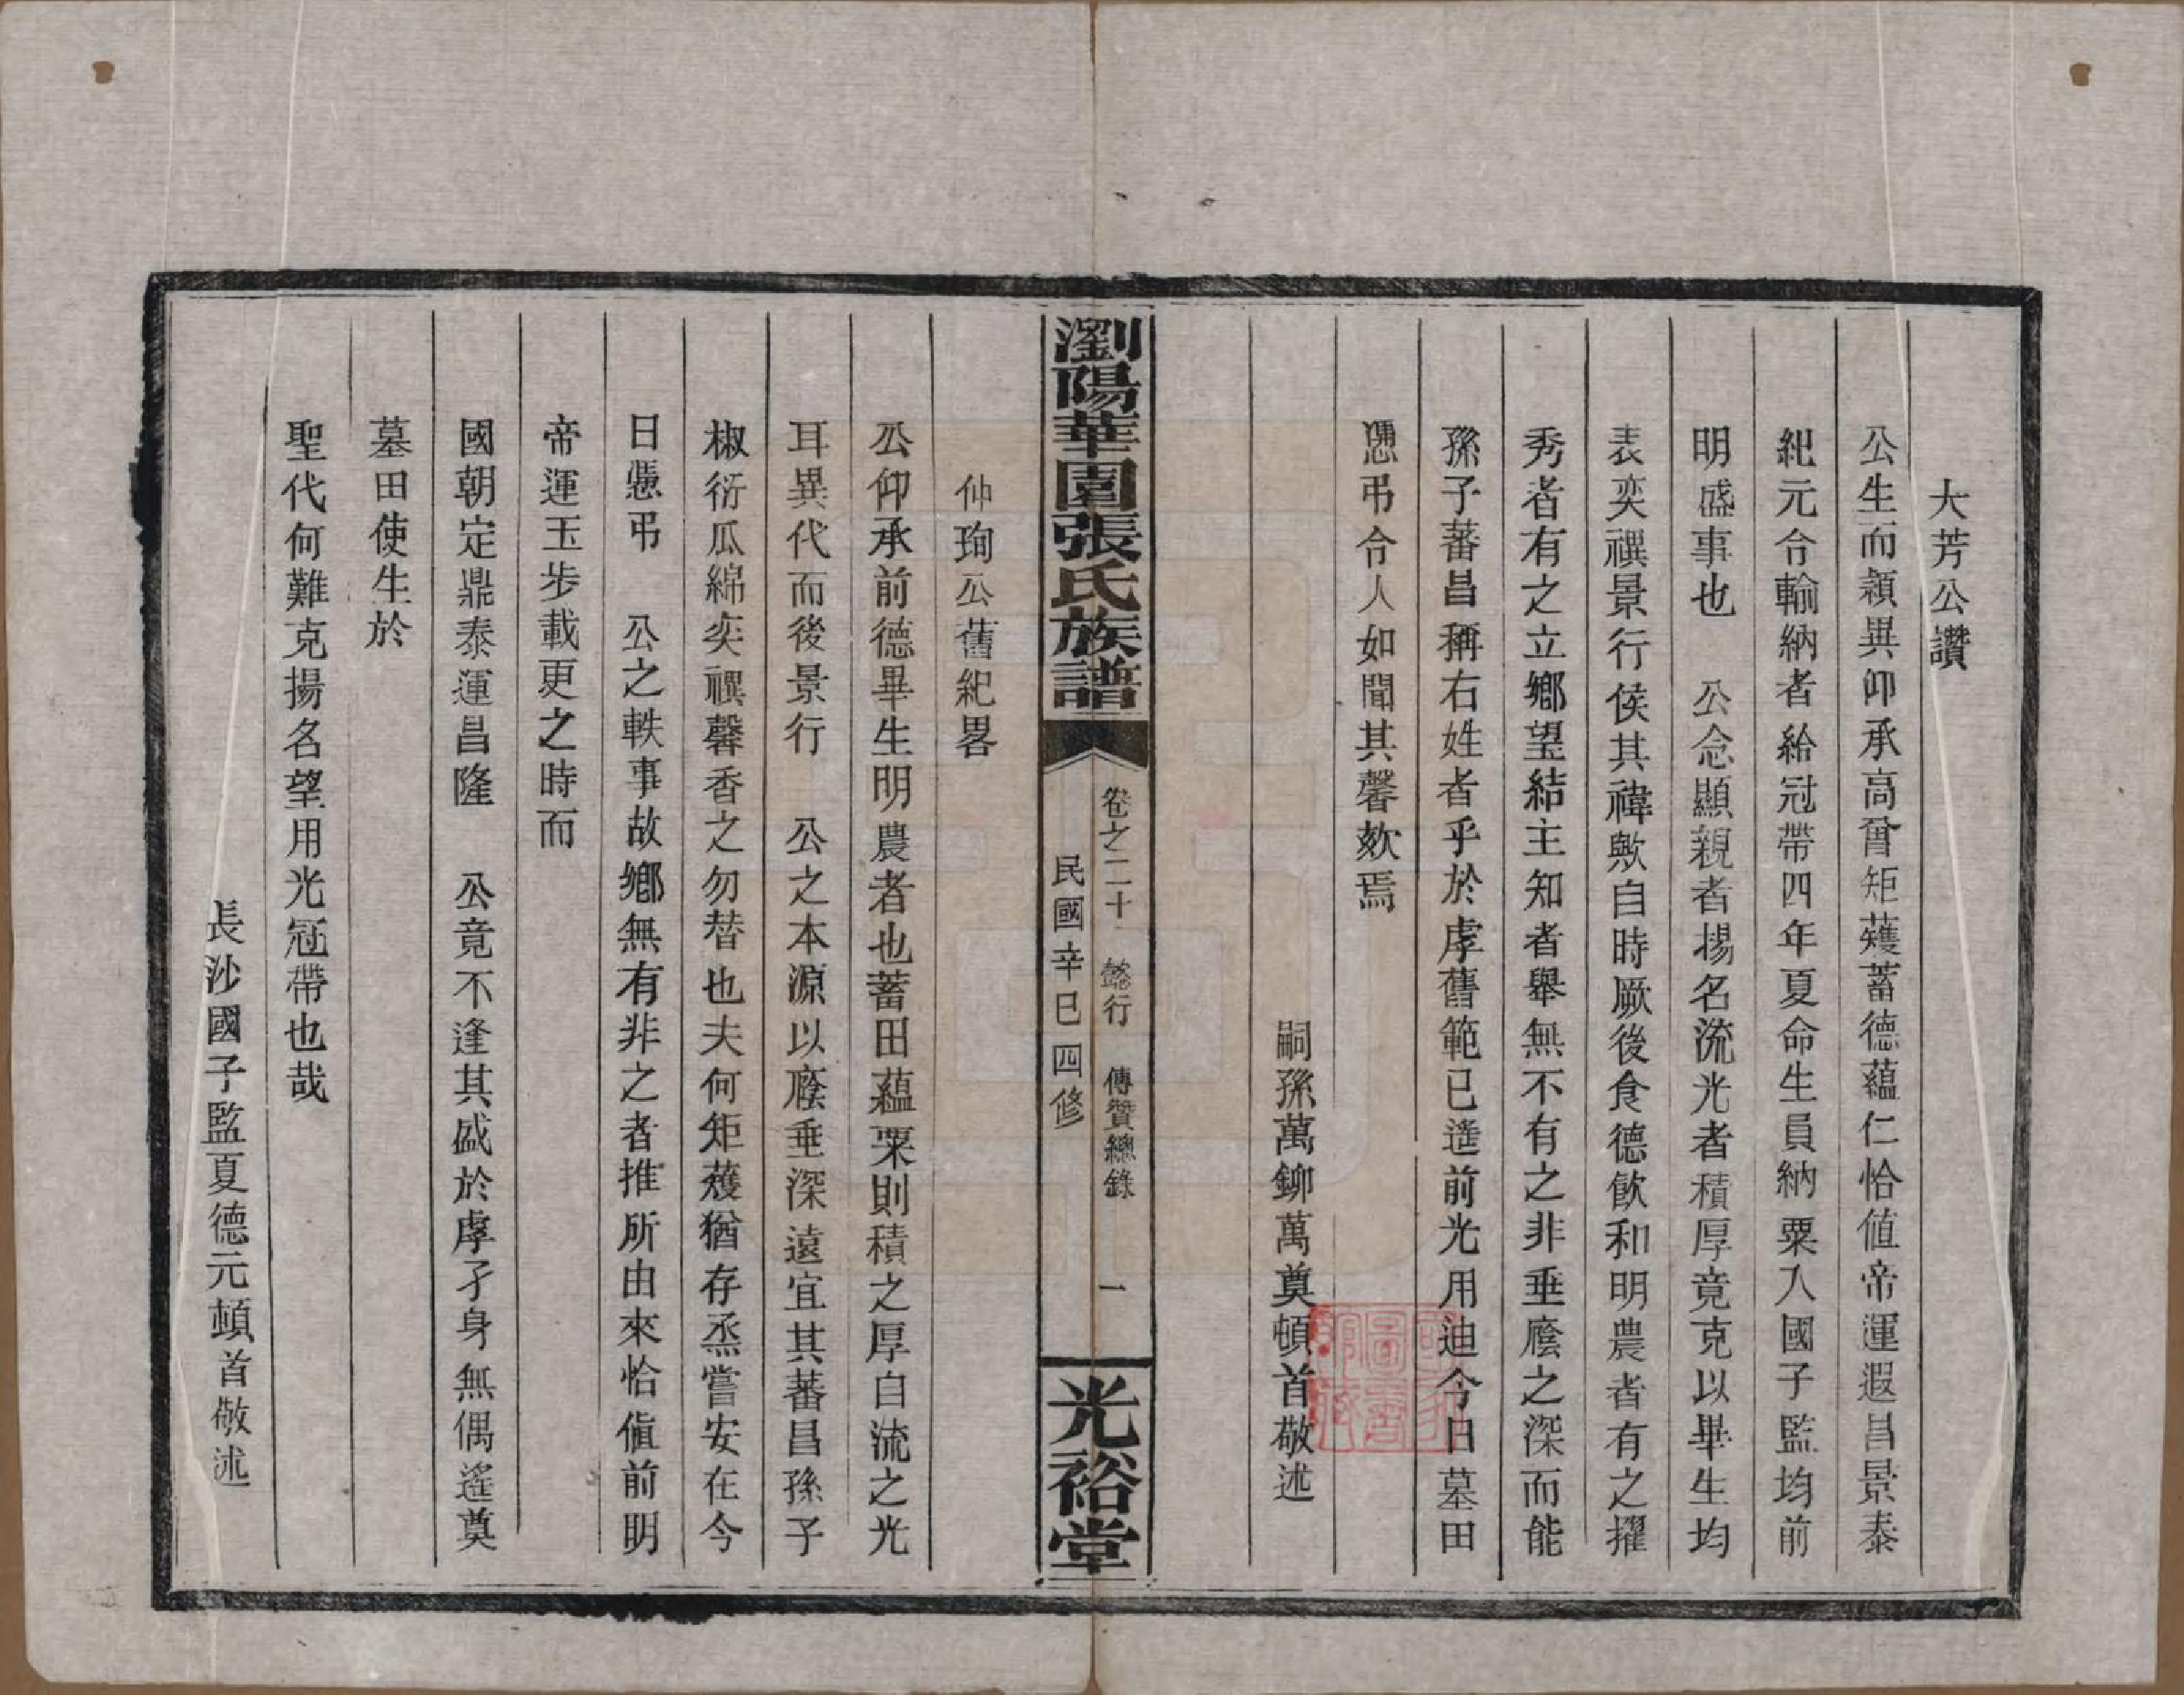 大芳公讚
公生而穎異仰承高曾矩矱蓄德蘊仁恰值帝運遐昌景泰
紀元令輸納者給冠帶四年夏命生員納粟入國子監均前
明盛事也 公念顯親者揚名流光者積厚竟克以畢生均
表奕禩景行俟其禕歟自時厥後食德飲和明農者有之擢
秀者有之立鄉望結主知者舉無不有之非垂廕之深而能
孫子蕃昌稱右姓者乎於虖舊範已遙前光用迪今日墓田
憑弔令人如聞其馨欬焉
嗣孫萬鉚萬奠頓首敬述
瀏陽華園張氏族譜
卷之二十 懿行 傳贊總錄 一
民國辛巳四修
光裕堂
仲珣公舊紀畧
公仰承前德畢生明農者也蓄田蘊粟則積之厚自流之光
耳異代而後景行 公之本源以廕垂深遠宜其蕃昌孫子
椒衍瓜綿奕禩馨香之勿替也夫何矩矱猶存烝嘗安在今
日憑弔 公之軼事故鄉無有非之者推所由來恰值前明
帝運玉步載更之時而
國朝定鼎泰運昌隆 公竟不逢其盛於虖孑身無偶遙奠
墓田使生於
聖代何難克揚名望用光冠帶也哉
長沙國子監夏德元頓首敬述